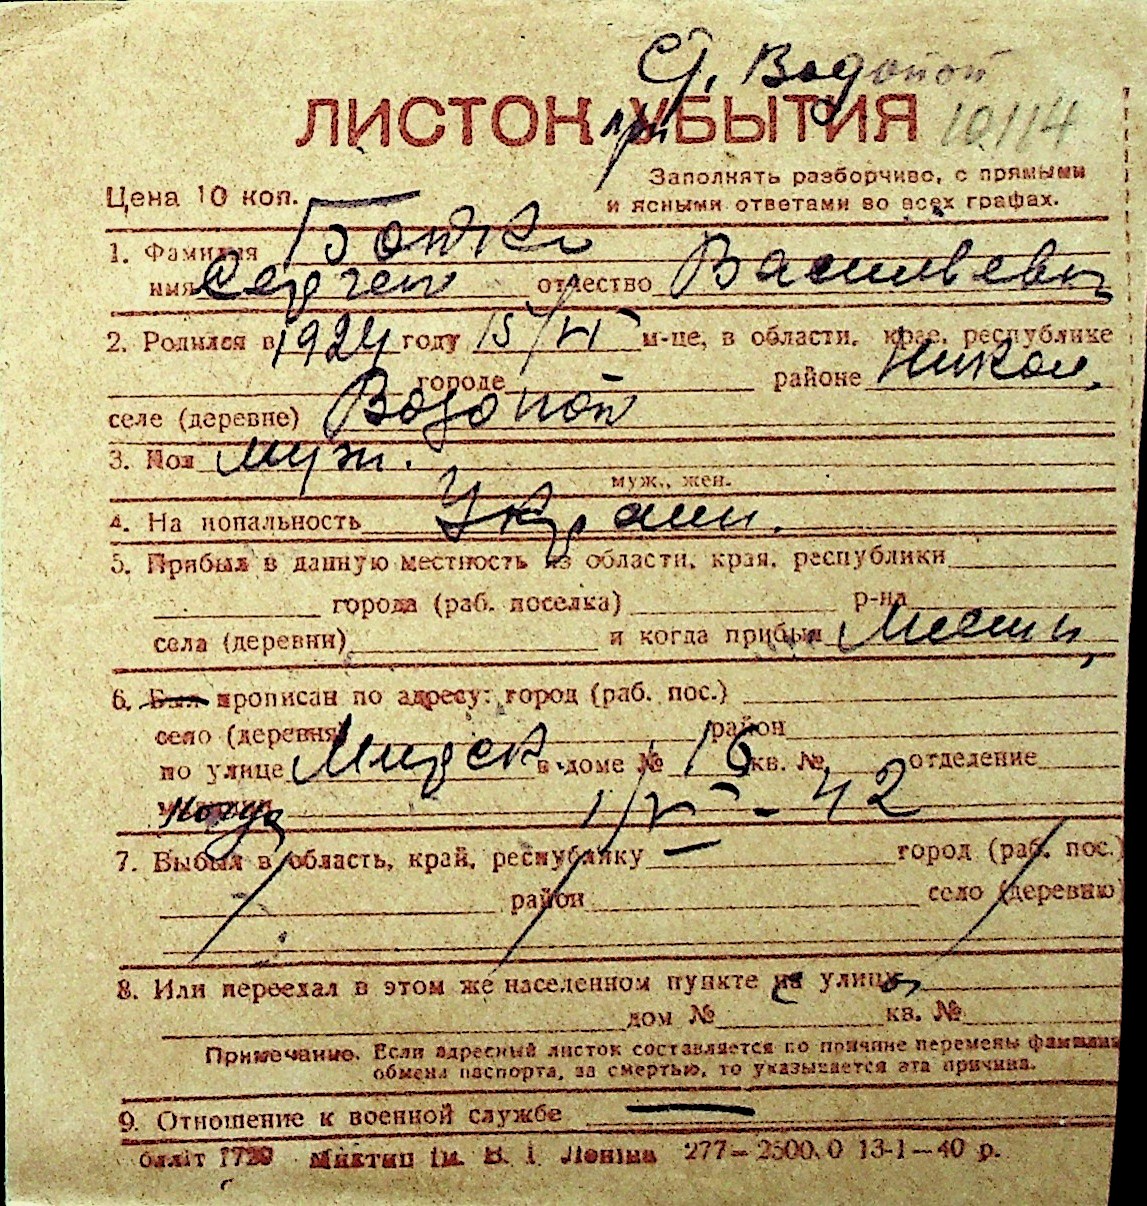 Ст. Водопой
ЛИСТОК УБЫТИЯ
при
10114
Цена 10 коп.
Заполнять разборчиво, с прямыми
и ясными ответами во всех графах.
1. Фамилия
имя Сергей отчество Васильевич
2. Родился в 1924 году 15/VI м-це, в области, крае, республике
городе районе Никол.
селе (деревне) Водопой
3. Пол муж.
муж., жен.
4. Национальность Украин.
5. Прибыл в данную местность из области, края, республики
города (раб. поселка) р-на
села (деревни) и когда прибыл Местн.
6. Был прописан по адресу: город (раб. пос.)
село (деревня) район
по улице в доме № 16 кв. № отделение
милиции
1/VI - 42
7. Выбыл в область, край, республику — город (раб. пос.)
район село (деревню)
8. Или переехал в этом же населенном пункте на улицу
дом № кв. №
Примечание. Если адресный листок составляется по причине перемены фамилии
обмена паспорта, за смертью, то указывается эта причина.
9. Отношение к военной службе —
ім. В. І. Леніна 277—2500.0 13-1—40 р.